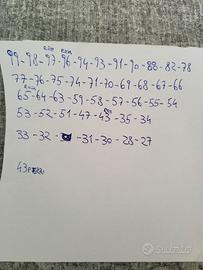 99-98-97-96-94-93-91-90-88-82-78
77-76-75-74-71-70-69-68-67-66
65-64-63-59-58-57-56-55-54
53-52-51-47-43-35-34
33-32- -31-30-28-27
43
subito